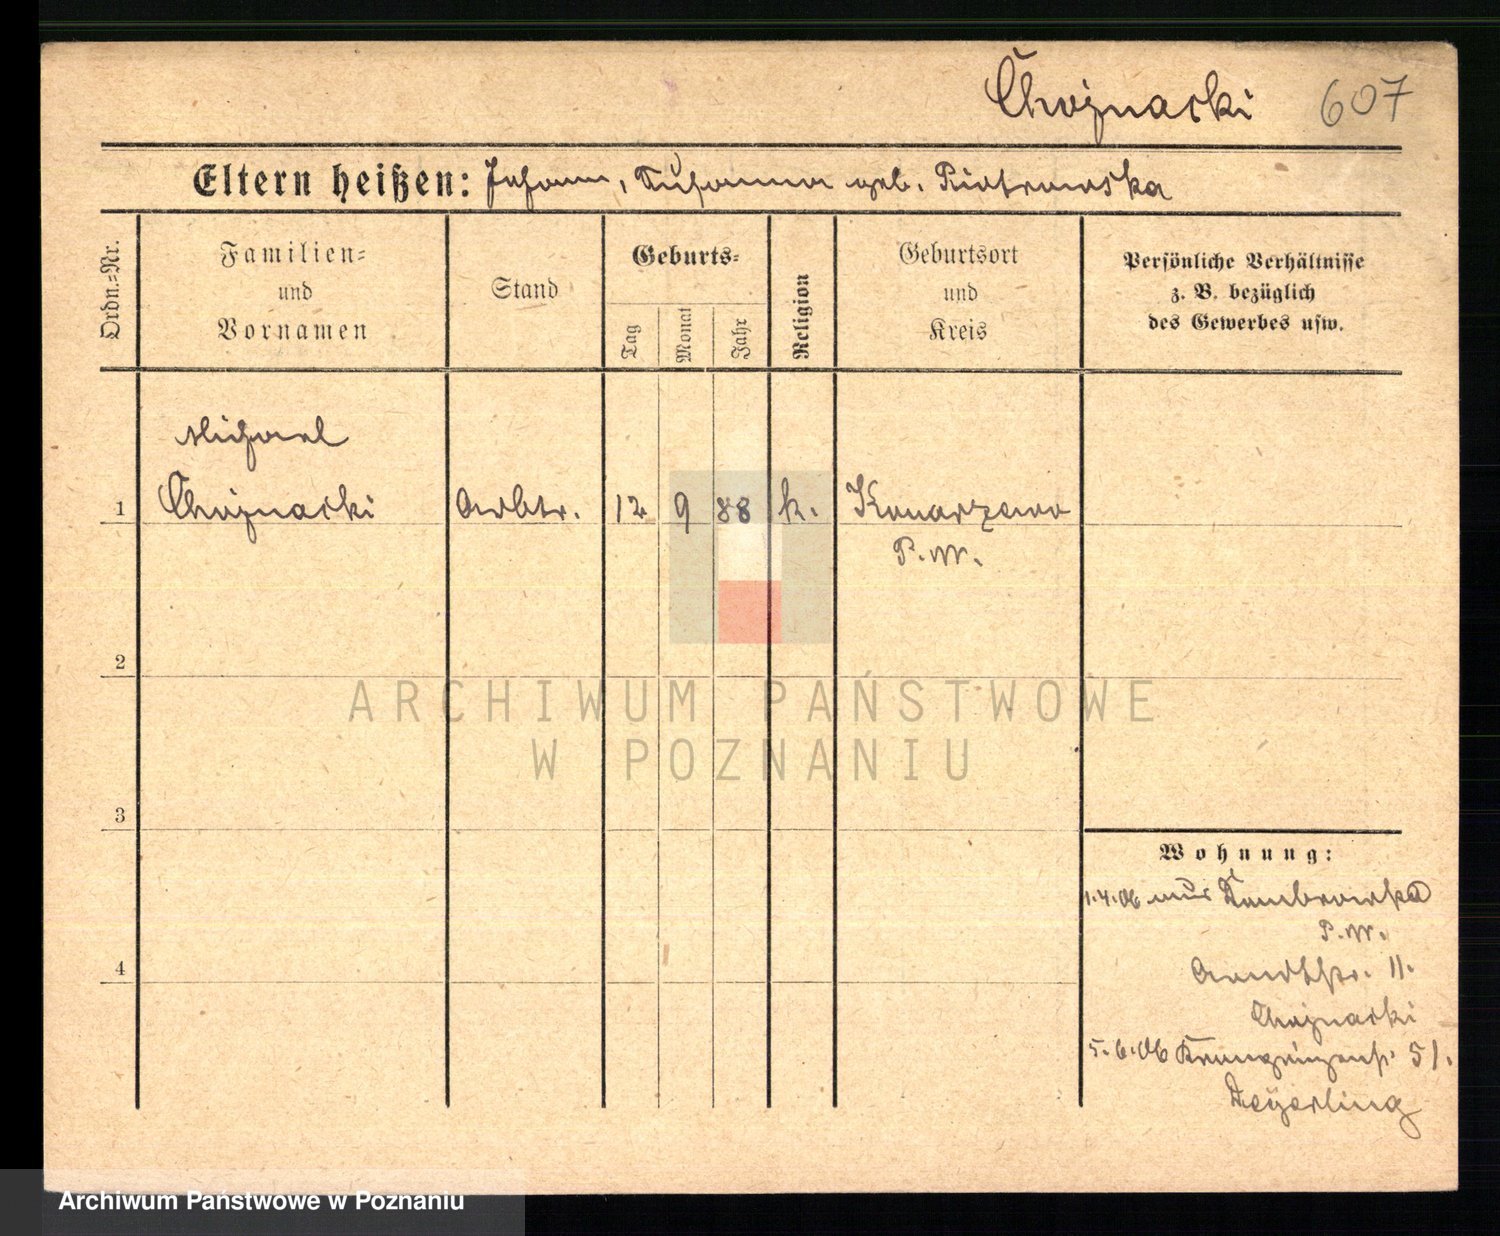 Chojnacki 607
Eltern heißen: Johann, Susanna geb. Piotrowska
Ordn.=Nr.
Familien=
und
Vornamen
Stand
Geburts=
Tag
Monat
Jahr
Religion
Geburtsort
und
Kreis
Persönliche Verhältnisse
z. B. bezüglich
des Gewerbes usw.
Michael
1 Chojnacki Arbtr. 12 9 88 k. Konarzewo
P.W.
2
ARCHIWUM PAŃSTWOWE
W POZNANIU
3
Wohnung:
1.4.06 aus Dombrowka
P.W.
4
Arndtstr. 11.
Chojnacki
5.6.06 Kronprinzenstr. 51.
Deyerling
Archiwum Państwowe w Poznaniu